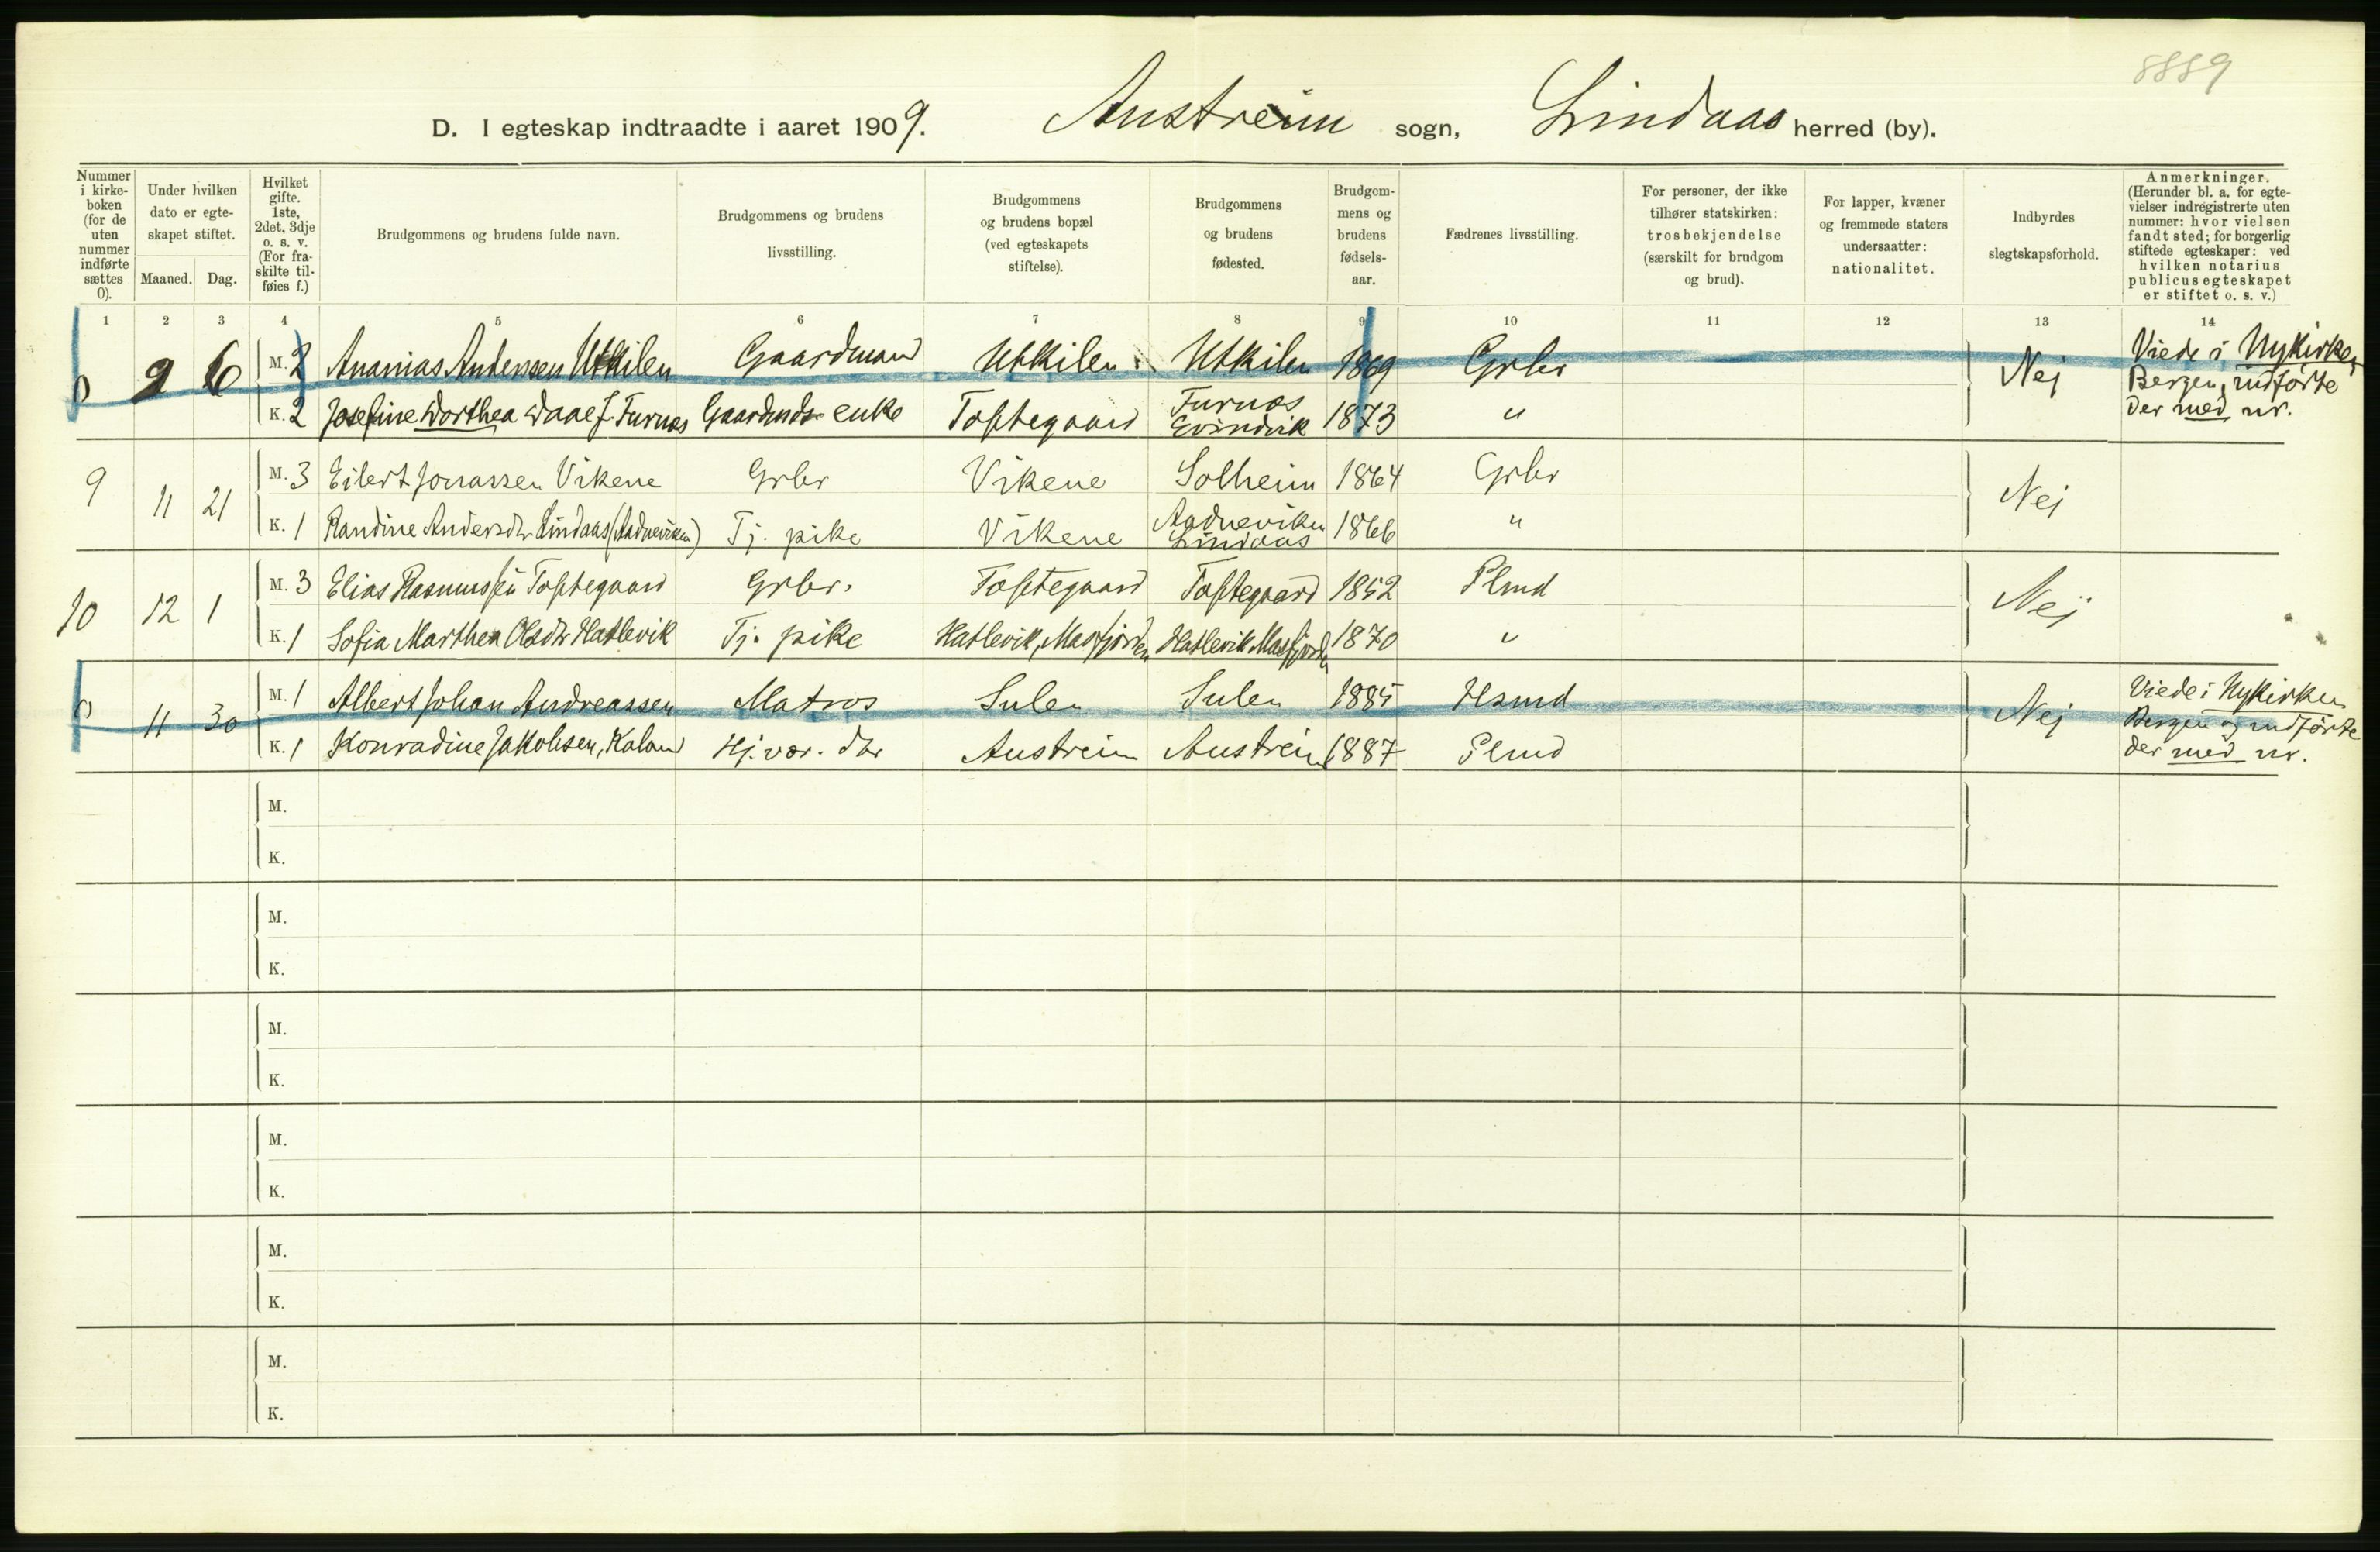 8889
D. I egteskap indtraadte i aaret 1909. Austreim sogn, Lindaas herred (by).
Nummer i kirke- boken (for de uten nummer indførte sættes 0).
Under hvilken dato er egte- skapet stiftet.
Maaned. Dag.
Hvilket gifte. 1ste, 2det, 3dje o. s. v. (For fra- skilte til- føies f.)
Brudgommens og brudens fulde navn.
Brudgommens og brudens livsstilling.
Brudgommens og brudens bopæl (ved egteskapets stiftelse).
Brudgommens og brudens fødested.
Brudgom- mens og brudens fødsels- aar.
Fædrenes livsstilling.
For personer, der ikke tilhører statskirken: trosbekjendelse (særskilt for brudgom og brud).
For lapper, kvæner og fremmede staters undersaatter: nationalitet.
Indbyrdes slegtskapsforhold.
Anmerkninger. (Herunder bl. a. for egte- vielser indregistrerte uten nummer: hvor vielsen fandt sted; for borgerlig stiftede egteskaper: ved hvilken notarius publicus egteskapet er stiftet o. s. v.)
1 2 3 4 5 6 7 8 9 10 11 12 13 14
0 2 6 M. 2 Ananias Andersen Utkilen Gaardmand Utkilen Utkilen 1869 Grbr Nej Viede i Nykirken, Bergen, indførte der med nr.
K. 2 Josefine Dorthea Daae f. Furnæs Gaardmds enke Toftegaard Furnæs Evindvik 1873 "
9 11 21 M. 3 Eilert Jonassen Vikene Grbr Vikene Solheim 1864 Grbr Nej
K. 1 Randine Andersdtr Lindaas (Aadneviken) Tj. pike Vikene Aadneviken Lindaas 1866 "
10 12 1 M. 3 Elias Rasmussen Toftegaard Grbr. Toftegaard Toftegaard 1852 Plmd Nej
K. 1 Sofia Marthea Olsdtr Hatlevik Tj. pike Hatlevik, Masfjorden Hatlevik Masfjorden 1870 "
0 11 30 M. 1 Albert Johan Andreassen Matros Sulen Sulen 1885 Hsmd Nej Viede i Nykirken Bergen og indførte der med nr.
K. 1 Konradine Jakobsen, Kaland Hj.vær. dtr Austreim Austreim 1887 Plmd
M.
K.
M.
K.
M.
K.
M.
K.
M.
K.
M.
K.